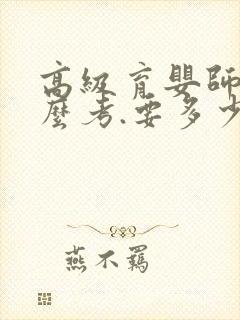 高級育嬰師
麼考.要多少
燕不羈